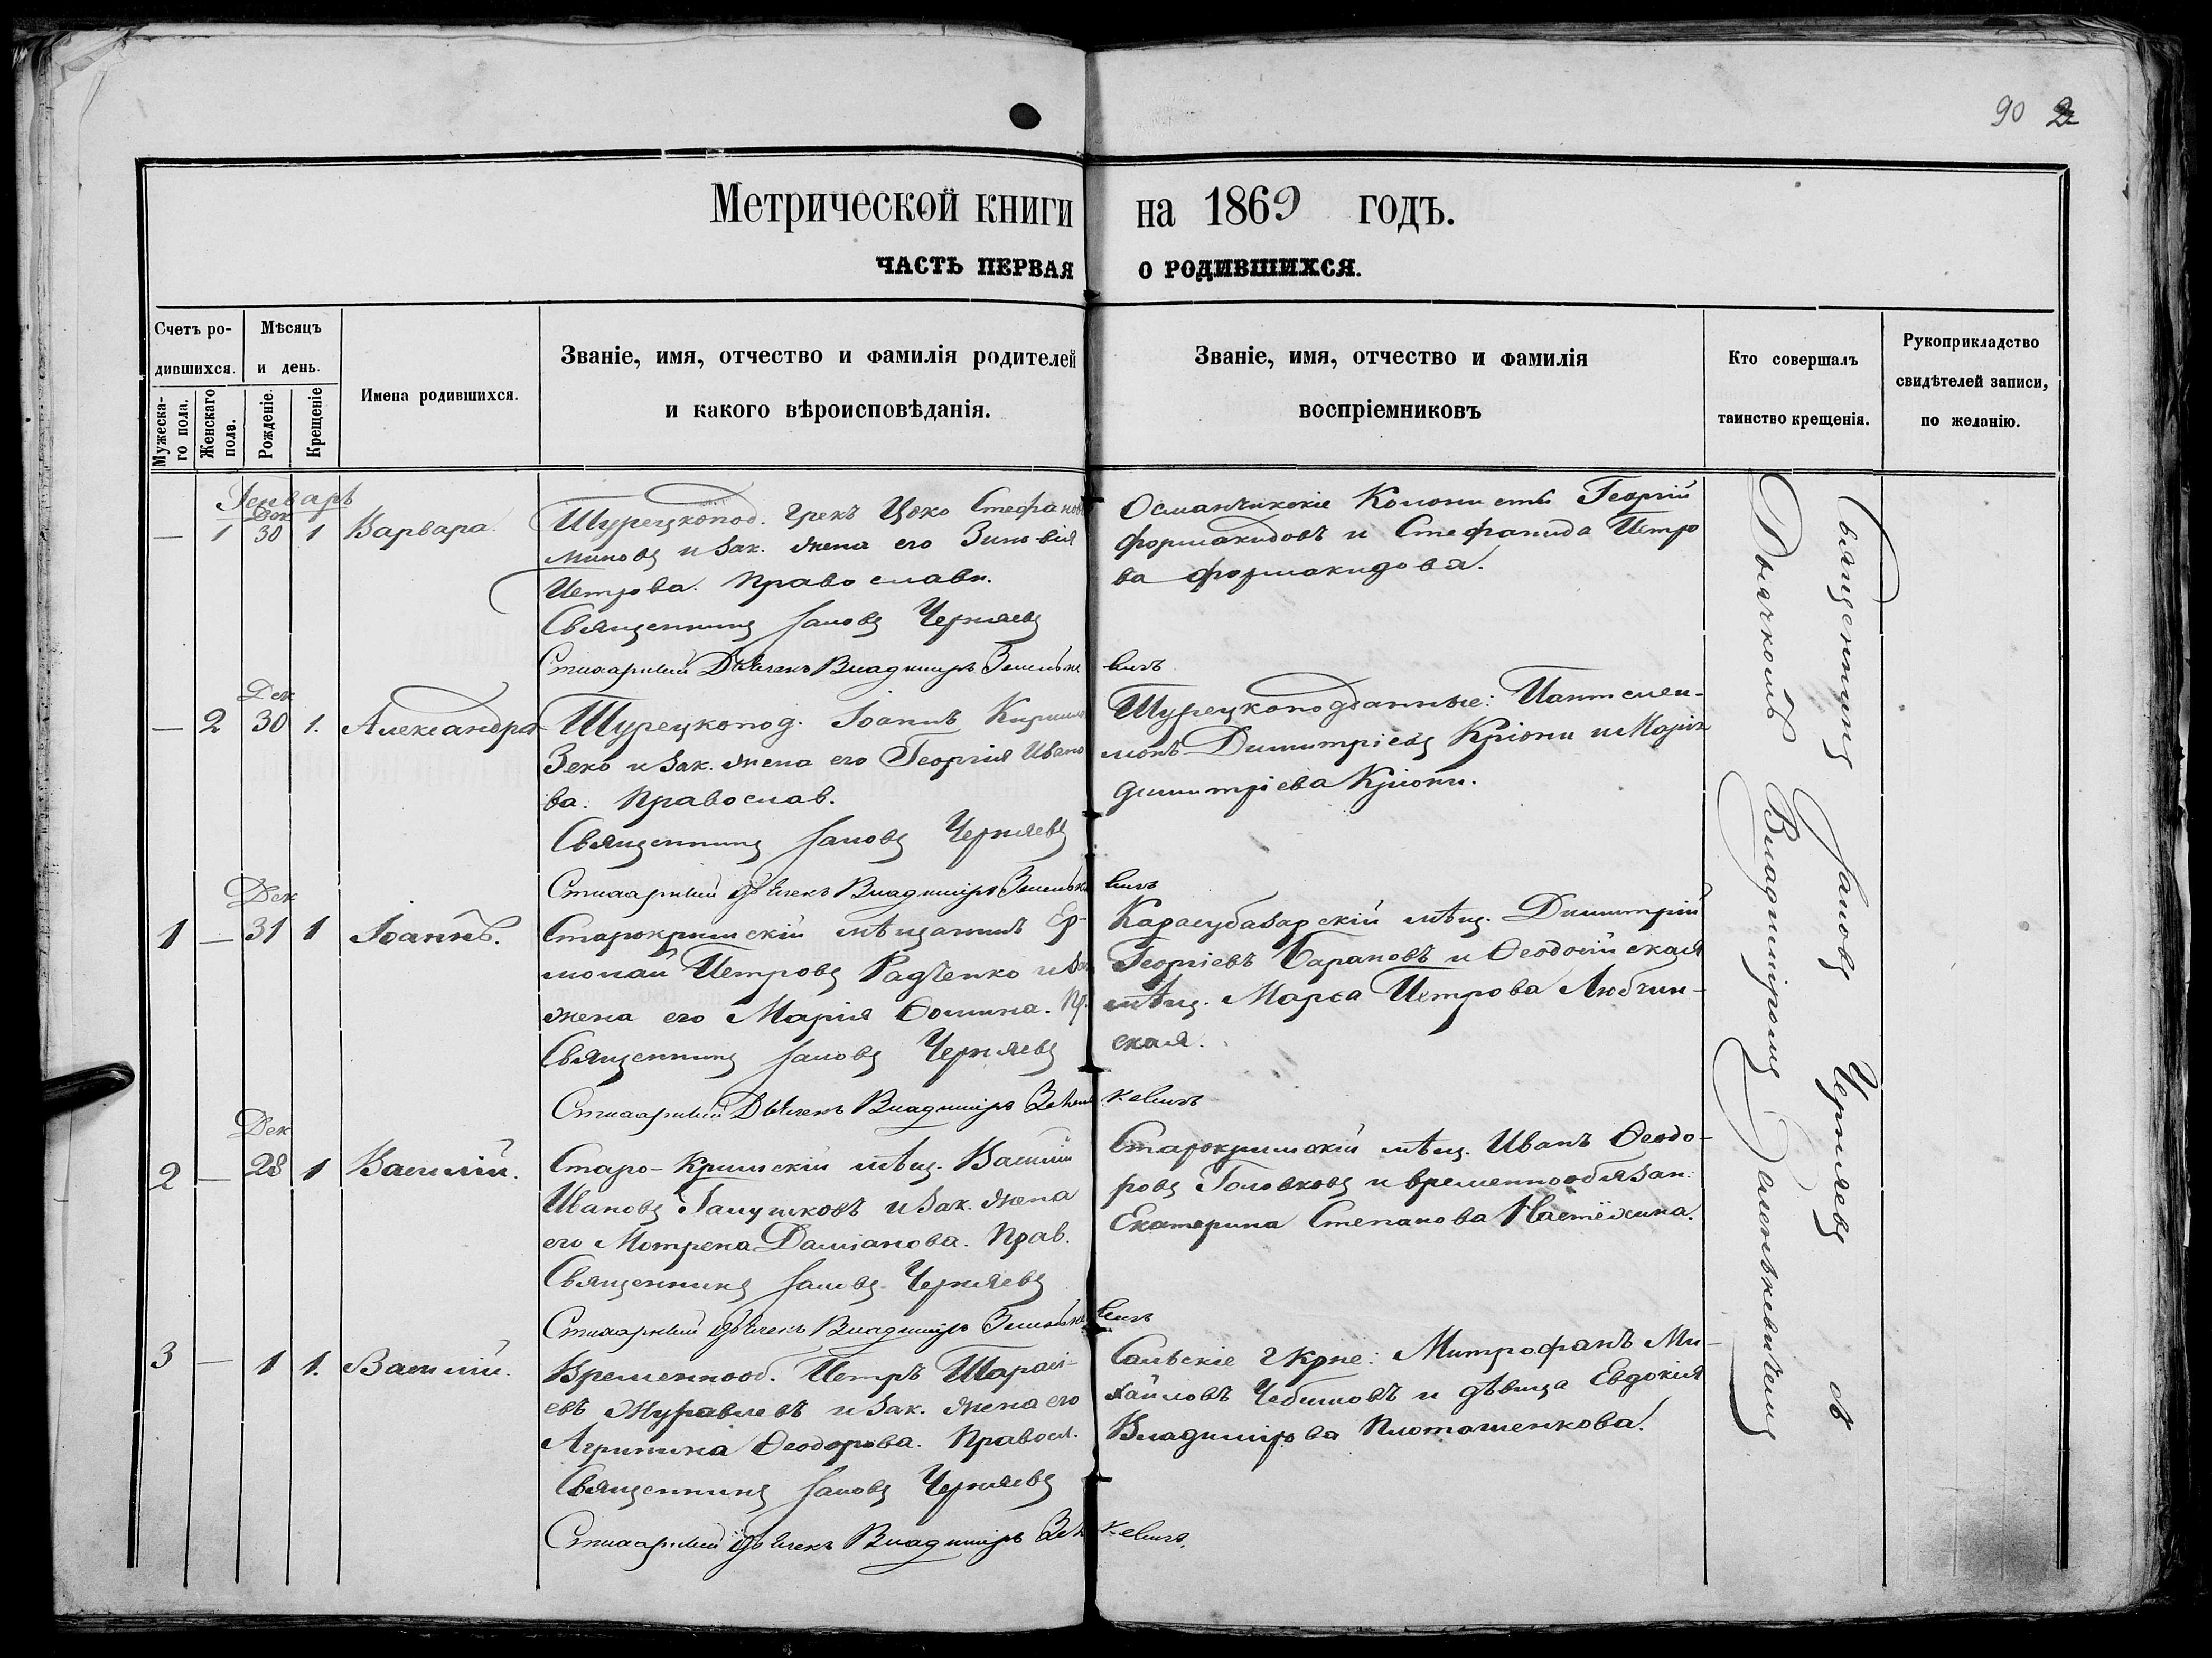 90 2
Метрической книги на 1869 годъ.
ЧАСТЬ ПЕРВАЯ О РОДИВШИХСЯ.
Счетъ родившихся.
Мужескаго пола.
Женскаго пола.
Мѣсяцъ и день.
Рожденіе.
Крещеніе
Имена родившихся.
Званіе, имя, отчество и фамилія родителей
и какого вѣроисповѣданія.
Званіе, имя, отчество и фамилія
воспріемниковъ
Кто совершалъ
таинство крещенія.
Рукоприкладство
свидѣтелей записи,
по желанію.
Генварь
— 1 Дек 30 1 Варвара.
Турецкопод. грекъ Цоко Стефановъ
Миновъ и зак. жена его Зиновія
Петрова. Православн.
Священникъ Іаковъ Черняевъ
Стихарный Дьячекъ Владиміръ Зенькевичъ
Колонисты Георгій
Формакидовъ и Стефанида Петро
ва Формакидова.
— 2 Дек 30 1. Александра
Турецкопод. Іоаннъ
Зеко и зак. жена его Георгія Ивано
ва. Православ.
Священникъ Іаковъ Черняевъ
Стихарный дьячекъ Владиміръ
Турецкоподданные: Пантелеи-
монъ Димитріевъ Кріони и Марія
Димитріева Кріони.
1 — Дек 31 1 Іоаннъ.
Старокрымскій мѣщанинъ Ер-
молай Петровъ Радченко и зак
жена его Марія Ѳомина. Пр.
Священникъ Іаковъ Черняевъ
Стихарный Дьячекъ Владиміръ
Карасубазарскій мѣщ. Димитрій
Георгіевъ Барановъ и Ѳеодосійская
мѣщ. Марѳа Петрова Любчин-
ская.
2 — Дек 28 1 Василій.
Старо-Крымскій мѣщ. Василій
Ивановъ Галушковъ и зак. жена
его Мотрена Даміанова. Прав.
Священникъ Іаковъ Черняевъ
Стихарный дьячекъ Владиміръ
Старокрымскій мѣщ. Иванъ Ѳеодо-
ровъ Головковъ и временнообязан.
Екатерина Степанова
3 — 1 1. Василій.
Временнооб. Петръ Тарасі-
евъ Журавлевъ и зак. жена его
Агрипина Ѳеодорова. Правосл.
Священникъ Іаковъ Черняевъ
Стихарный дьячекъ Владиміръ
Митрофанъ Ми-
хайловъ Чебышовъ и дѣвица Евдокія
Владимірова Плоташенкова.
Священникъ Іаковъ Черняевъ съ
Дьячкомъ Владиміромъ